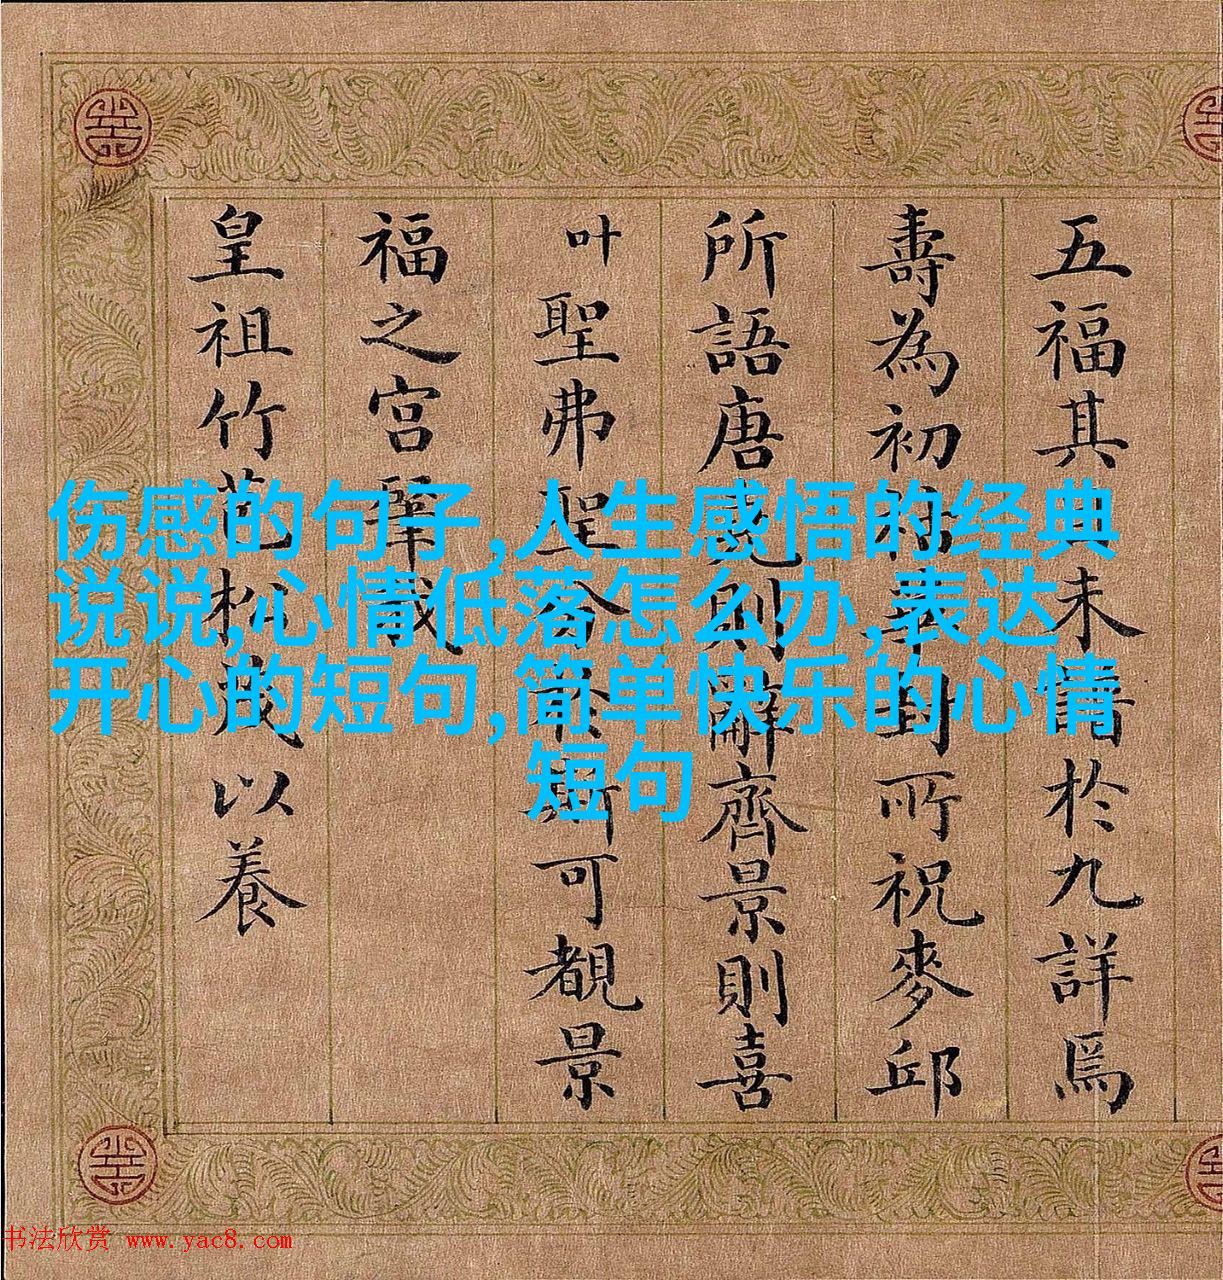 五福其未於九詳焉
壽為初所祝麥邱
所語唐堯則辭齊景則喜
叶聖弗聖合斯可覩景
福之宮肇
皇祖竹苞松茂以養
伤感的句子,人生感悟的经典
说说,心情低落怎么办,表达
开心的短句,简单快乐的心情
短句
书法欣赏 www.yac8.com